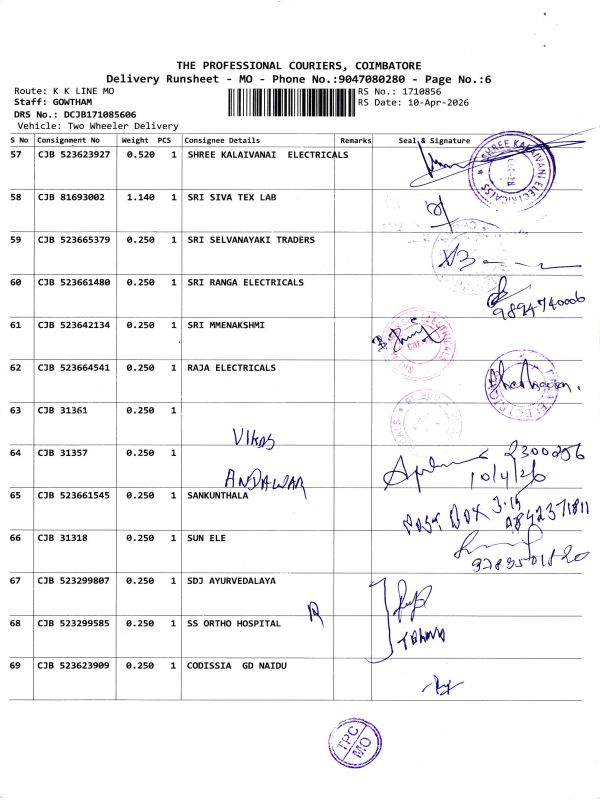 THE PROFESSIONAL COURIERS, COIMBATORE
Delivery Runsheet - MO - Phone No.:9047080280 - Page No.:6
Route: K K LINE MO
RS No.: 1710856
Staff: GOWTHAM
RS Date: 10-Apr-2026
DRS No.: DCJB171085606
Vehicle: Two Wheeler Delivery
S No Consignment No Weight PCS Consignee Details Remarks Seal & Signature
57 CJB 523623927 0.520 1 SHREE KALAIVANAI ELECTRICALS
SHREE KALAIVANI ELECTRICALSS
58 CJB 81693002 1.140 1 SRI SIVA TEX LAB
59 CJB 523665379 0.250 1 SRI SELVANAYAKI TRADERS
60 CJB 523661480 0.250 1 SRI RANGA ELECTRICALS
9894740006
61 CJB 523642134 0.250 1 SRI MMENAKSHMI
62 CJB 523664541 0.250 1 RAJA ELECTRICALS
63 CJB 31361 0.250 1
VIKAS
64 CJB 31357 0.250 1
2300256
10/4/26
ANDAWAR
65 CJB 523661545 0.250 1 SANKUNTHALA
POST BOX 3.15
9842371811
66 CJB 31318 0.250 1 SUN ELE
67 CJB 523299807 0.250 1 SDJ AYURVEDALAYA
68 CJB 523299585 0.250 1 SS ORTHO HOSPITAL
69 CJB 523623909 0.250 1 CODISSIA GD NAIDU
TPC
MO